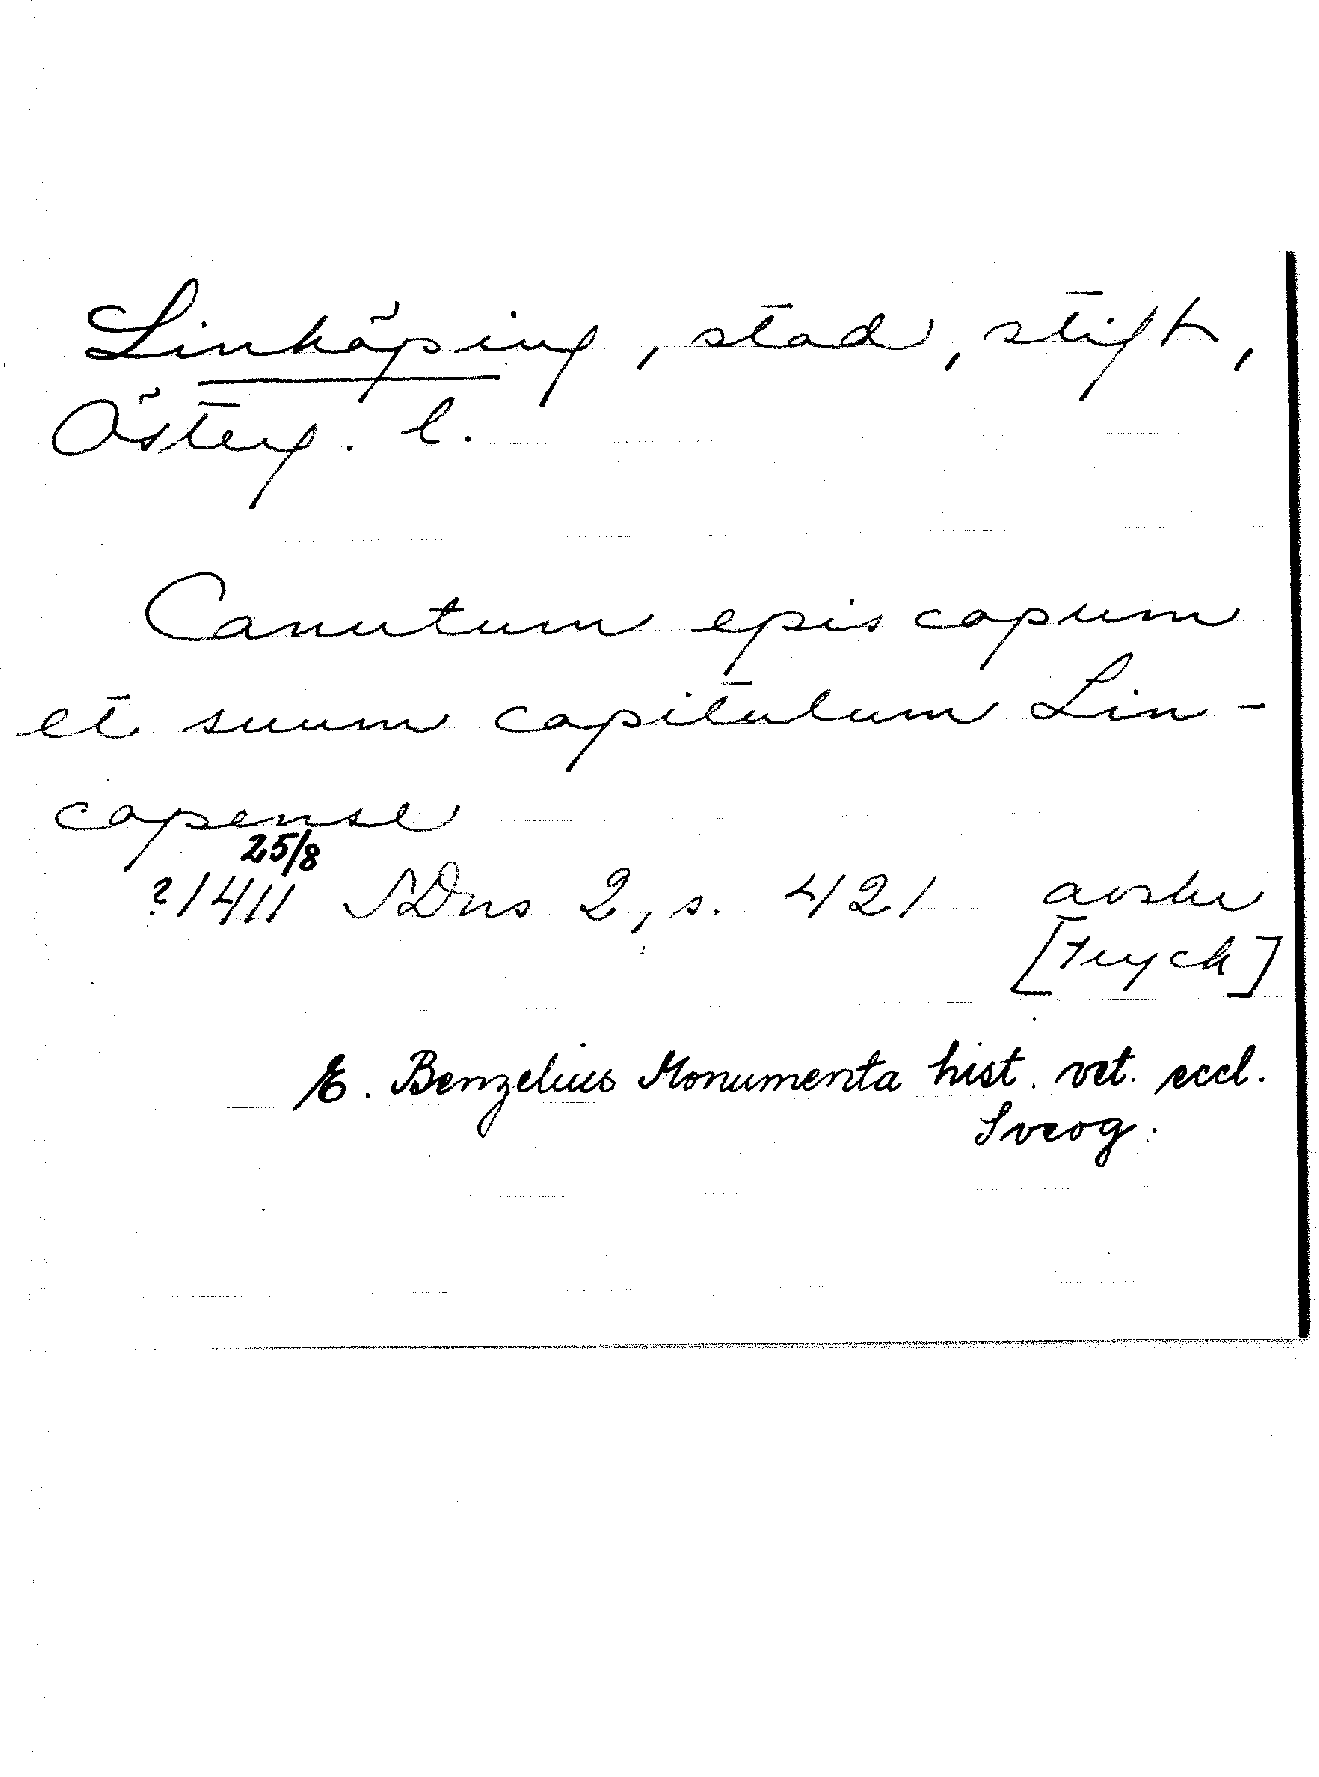 Linköping, stad, stift,
Österg. l.
Canutum episcopum
et suum capitulum Lin-
copense
25/8
?1411 SDns 2, s. 421 avskr
[tryck]
E. Benzelius Monumenta hist. vet. eccl.
Sveog.